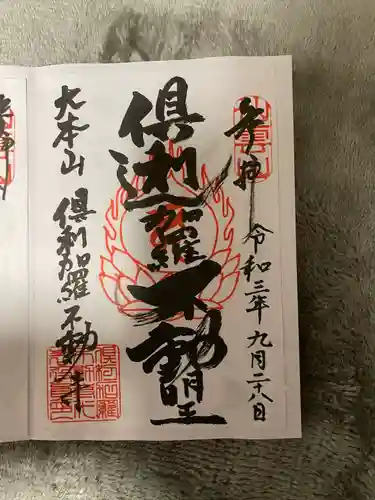 奉拝
令和三年九月二十八日
倶利迦羅不動明王
大本山
倶利迦羅不動寺